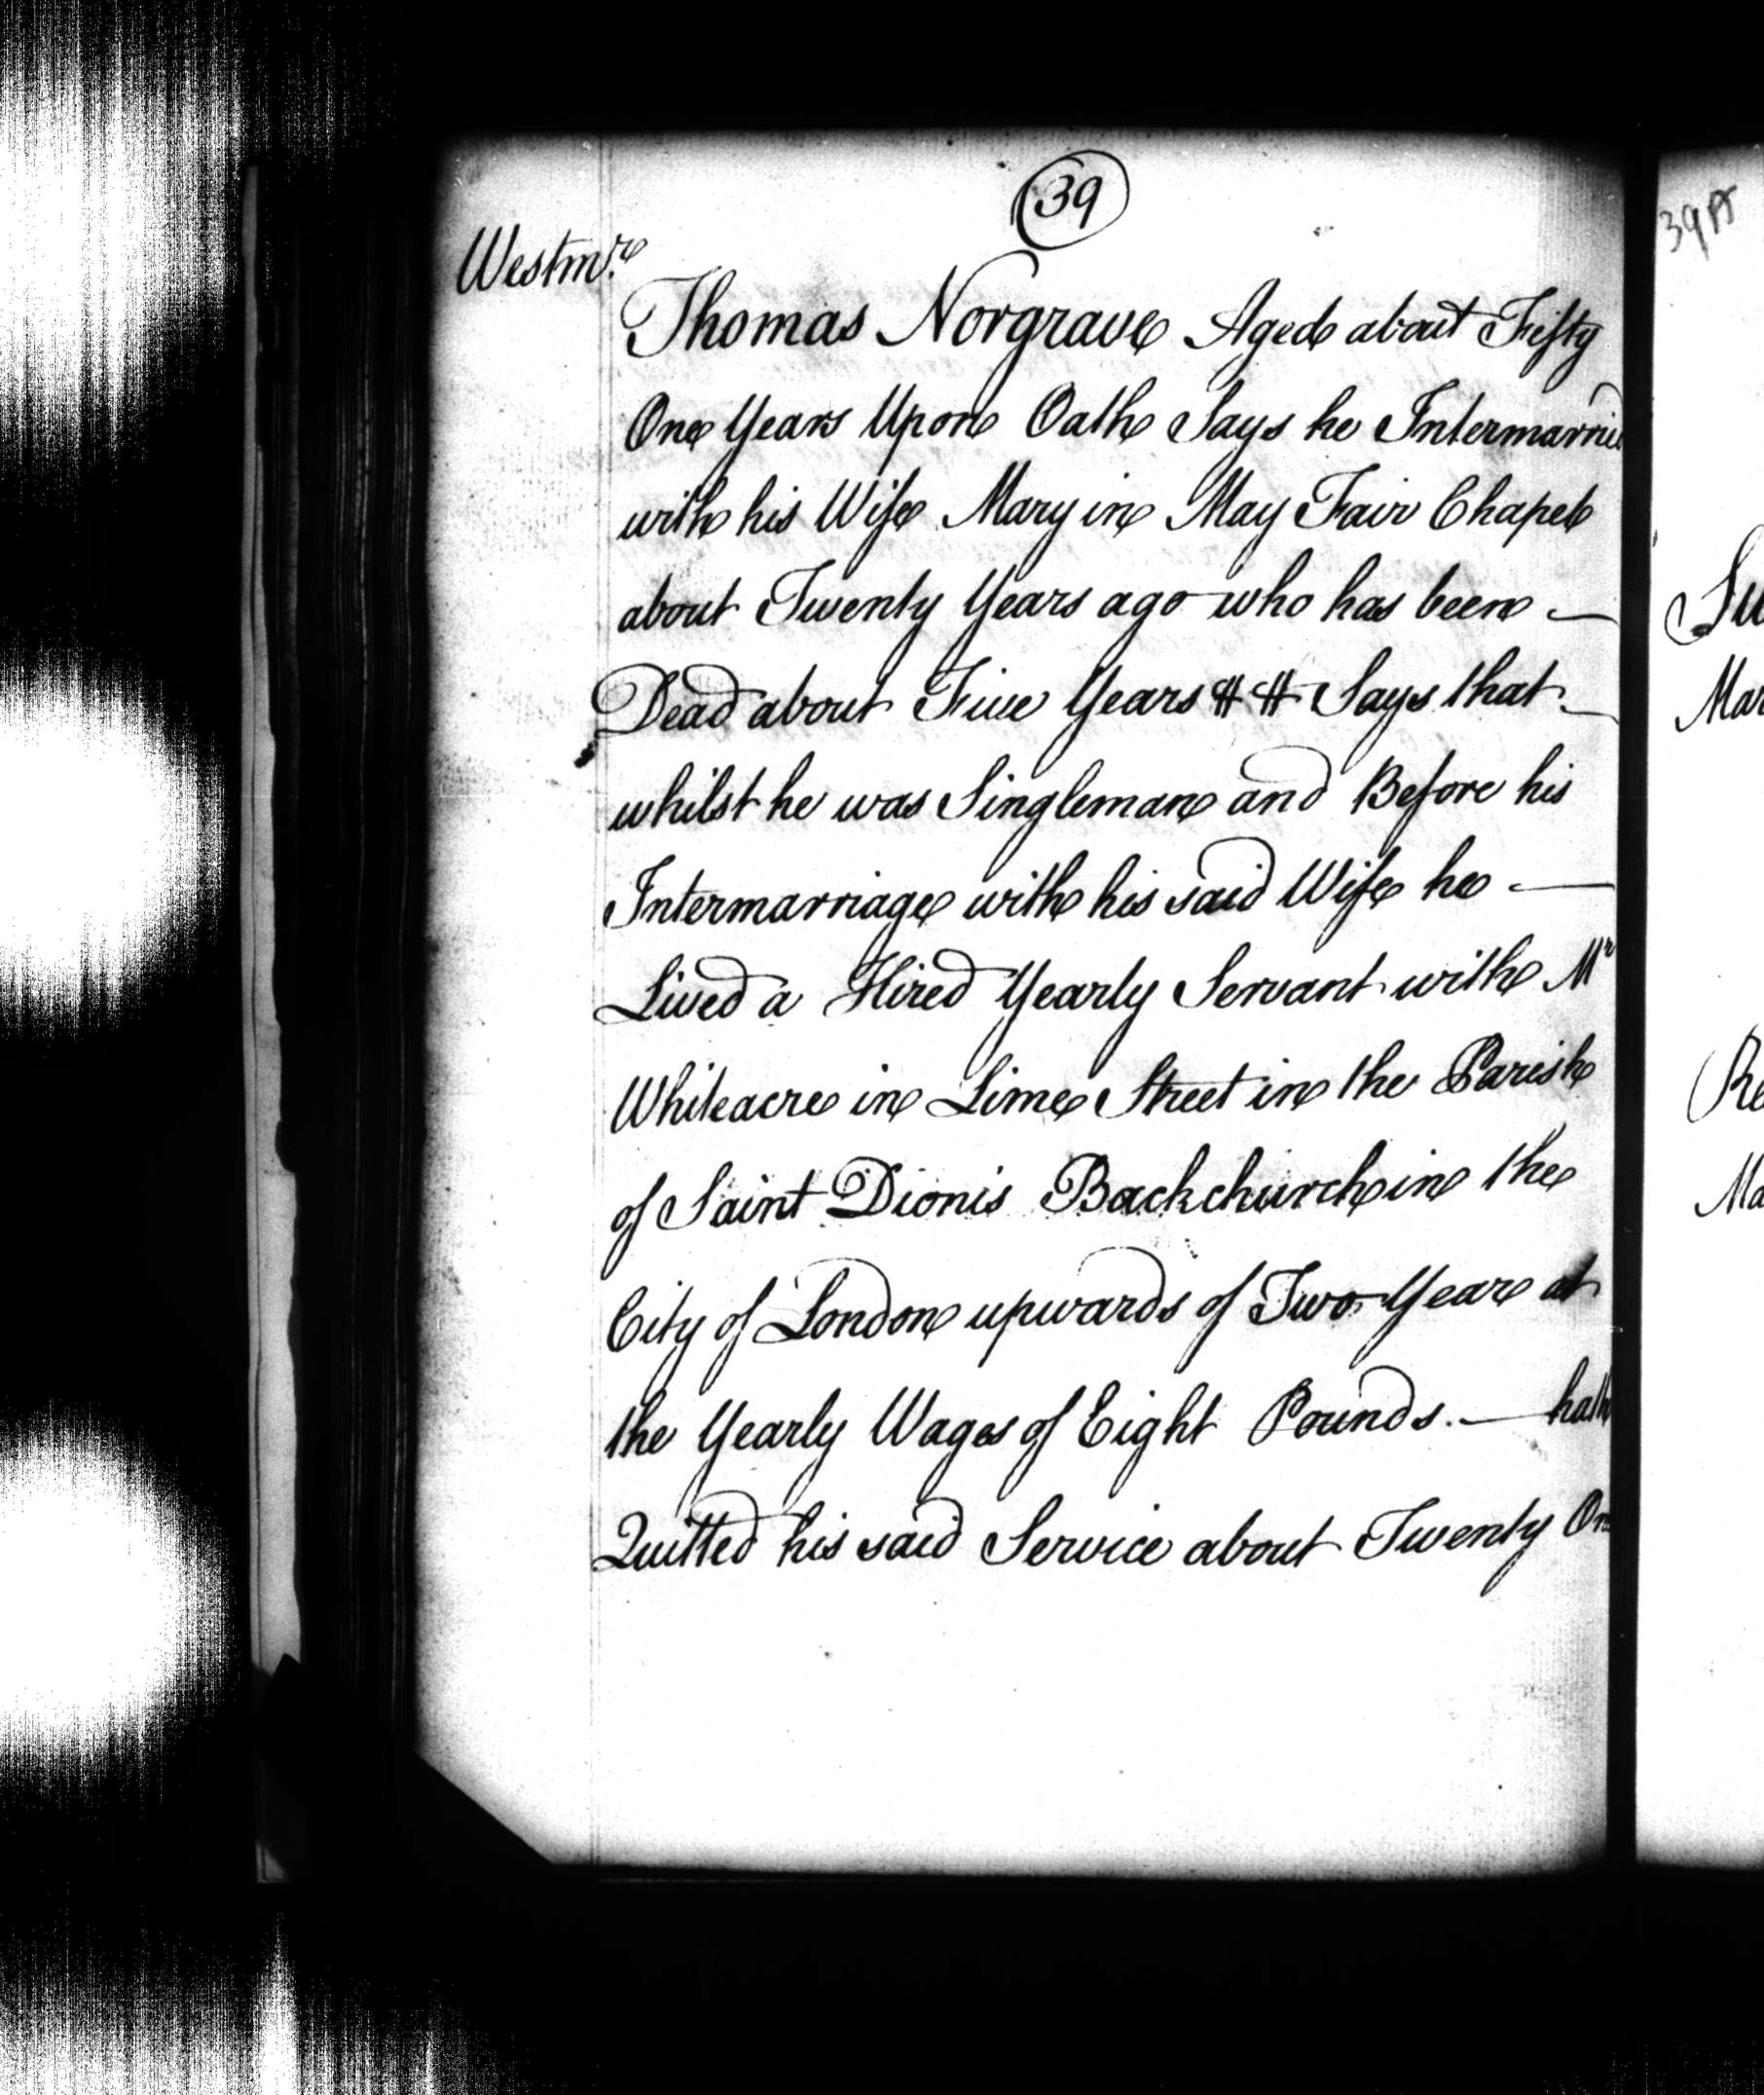 39
39 pt
Westmr
Thomas Norgrave Aged about Fifty
One Years Upon Oath Says he Intermarried
with his Wife Mary in May Fair Chapel
about Twenty Years ago who has been —
Dead about Five Years # # Says that —
whilst he was Singleman and Before his
Intermarriage with his said Wife he —
Lived a Hired Yearly Servant with Mr
Whiteacre in Lime Street in the Parish
of Saint Dionis Backchurch in the
City of London upwards of Two Year at
the Yearly Wages of Eight Pounds. — hath
Quitted his said Service about Twenty One